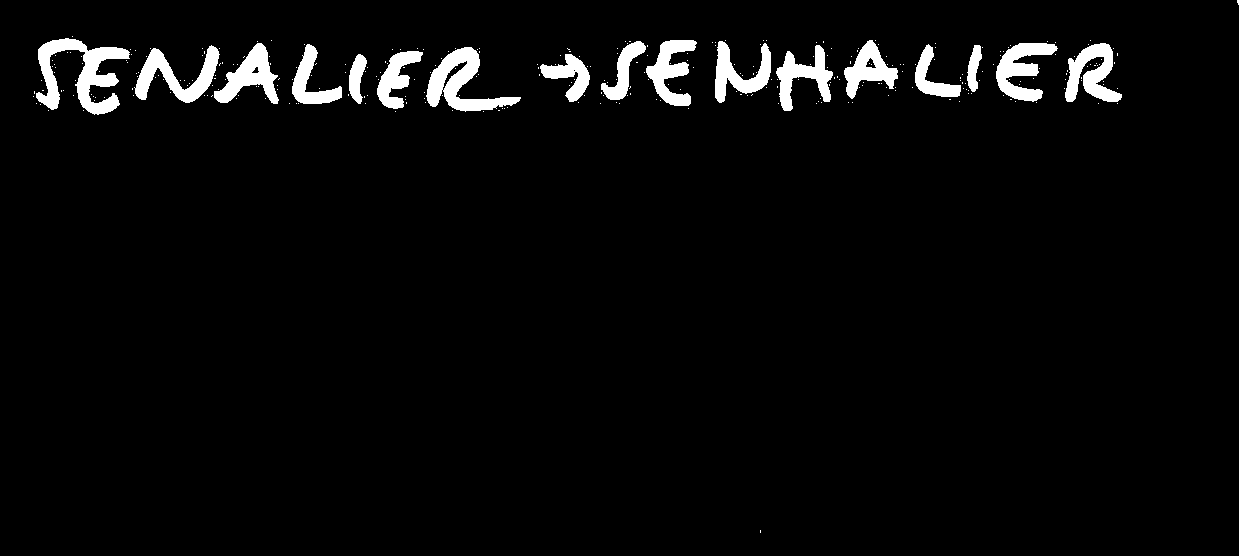 SENALIER → SENHALIER